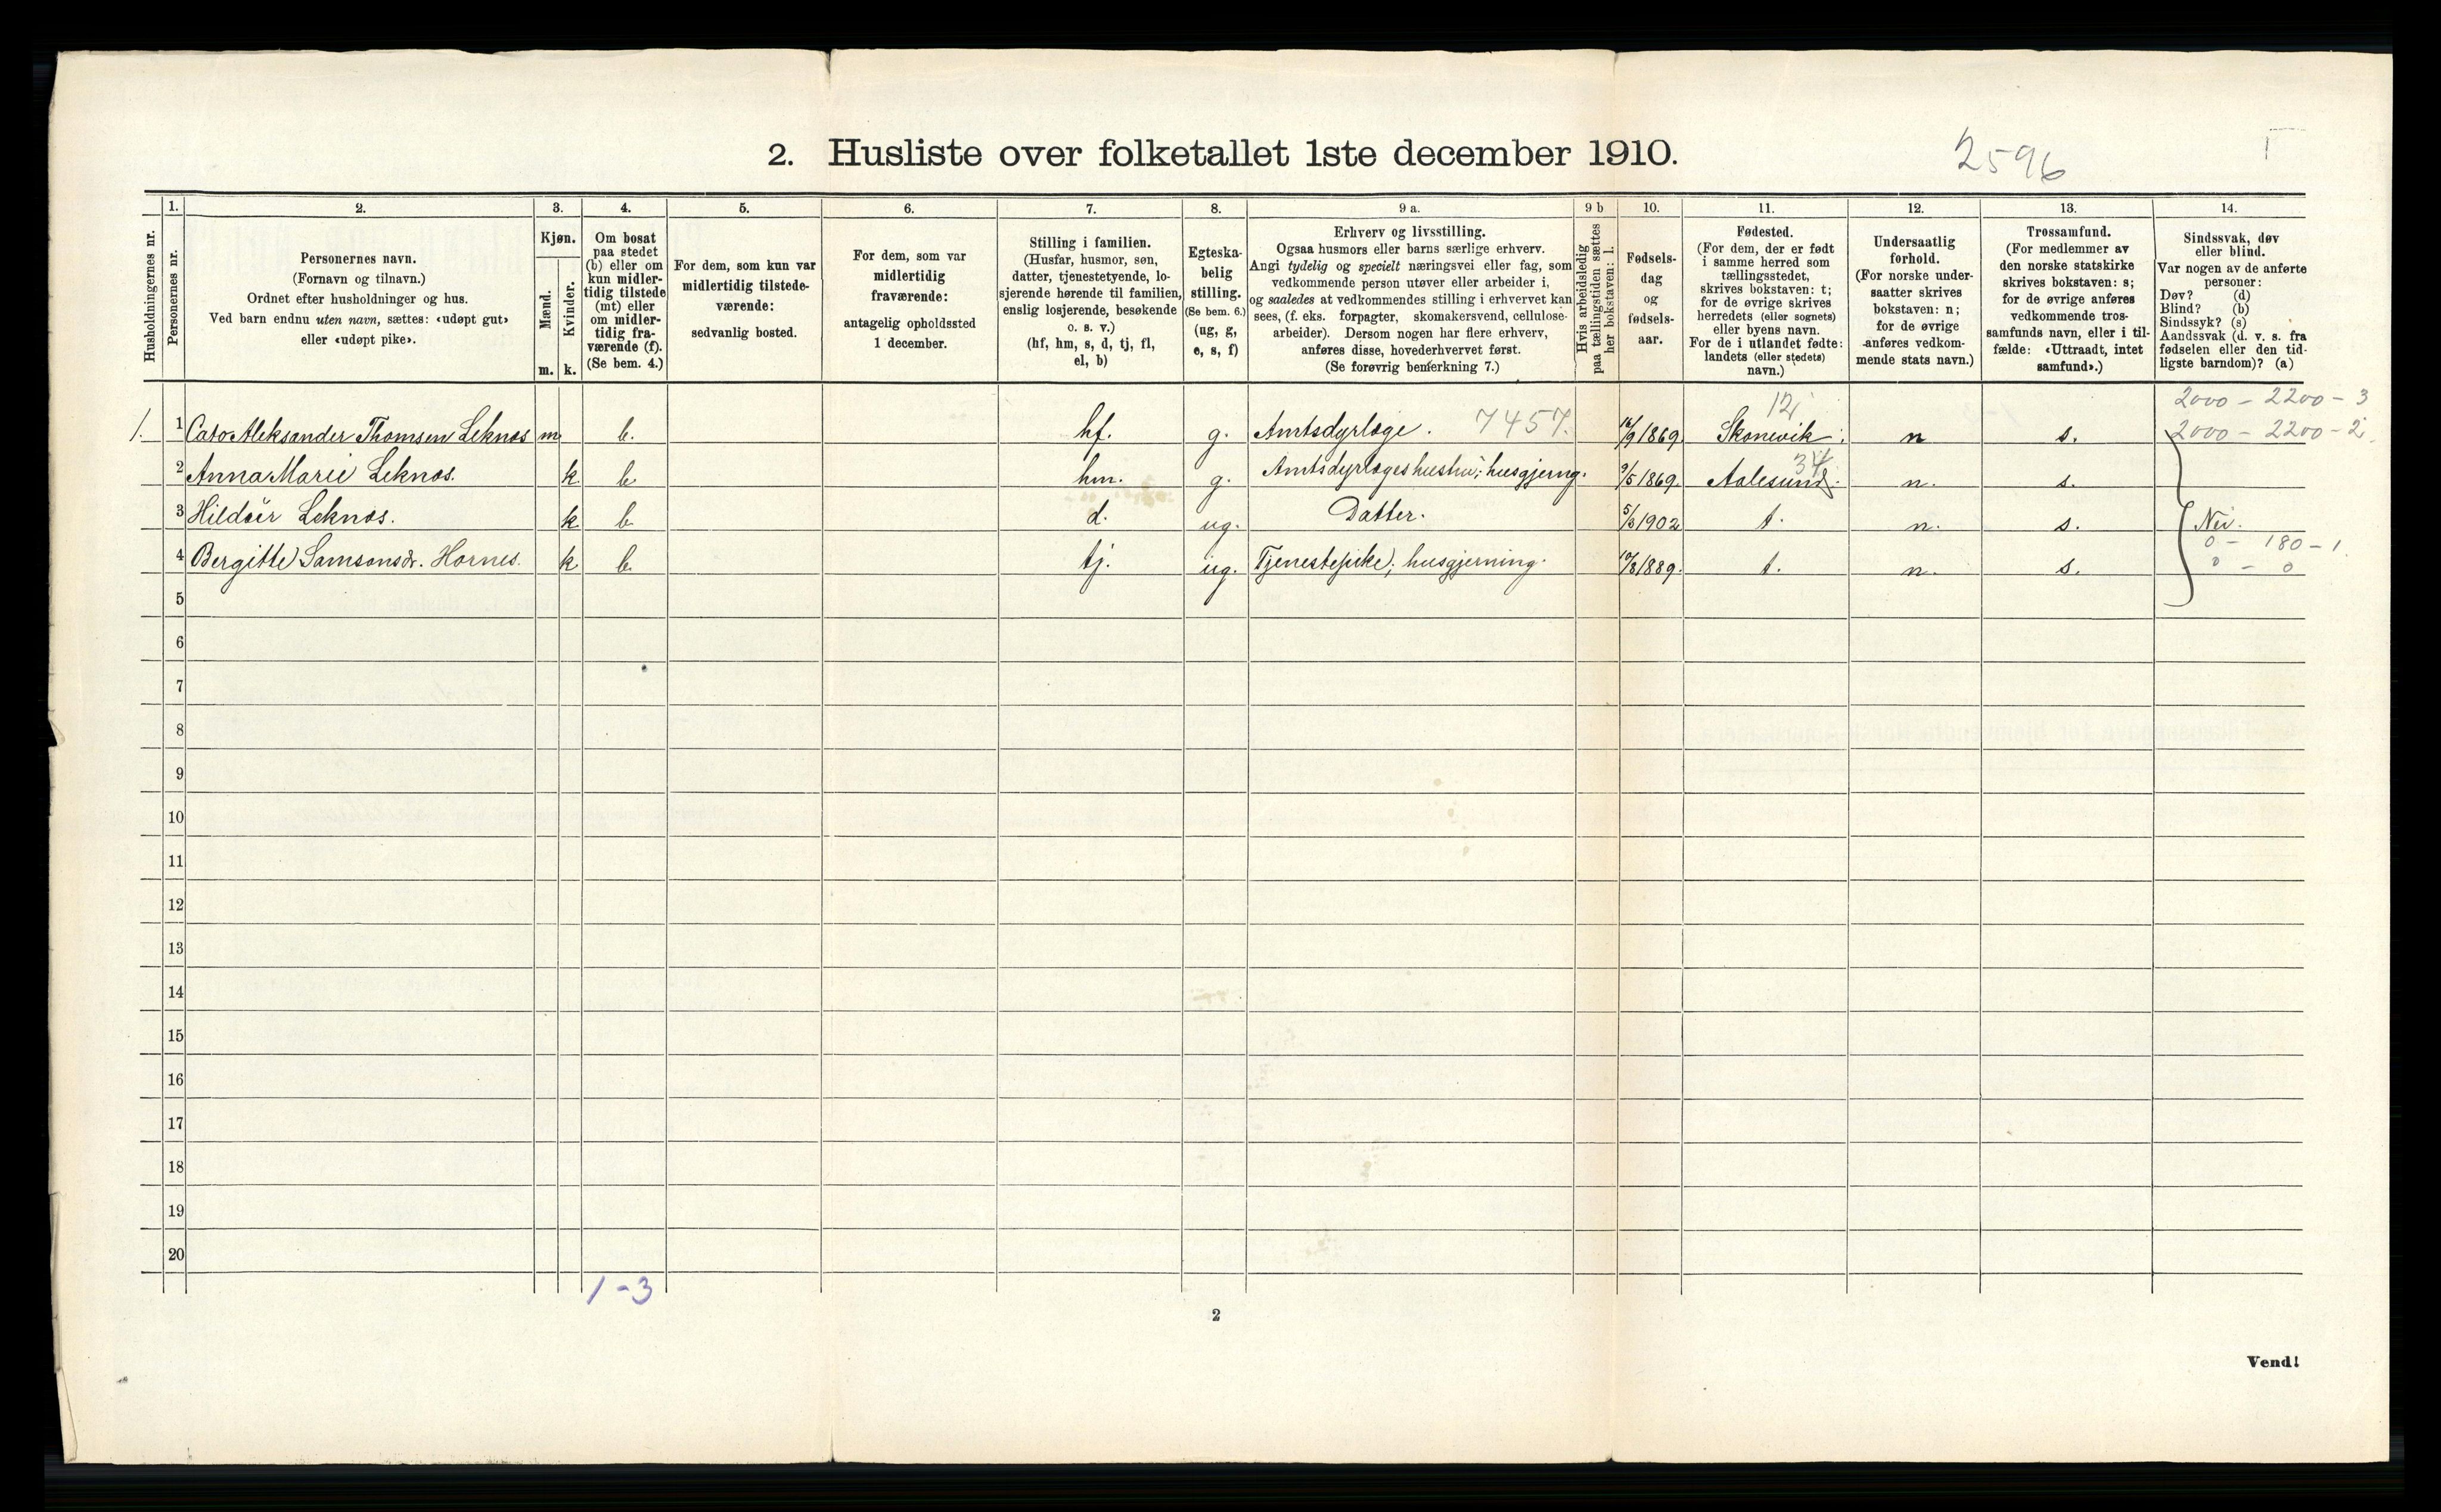 2. Husliste over folketallet 1ste december 1910.
2596
Husholdningernes nr.
1.
Personernes nr.
2.
Personernes navn.
(Fornavn og tilnavn.)
Ordnet efter husholdninger og hus.
Ved barn endnu uten navn, sættes: «udøpt gut»
eller «udøpt pike».
3.
Kjøn.
Mænd.
Kvinder.
m. k.
4.
Om bosat
paa stedet
(b) eller om
kun midler-
tidig tilstede
(mt) eller
om midler-
tidig fra-
værende (f).
(Se bem. 4.)
5.
For dem, som kun var
midlertidig tilstede-
værende:
sedvanlig bosted.
6.
For dem, som var
midlertidig
fraværende:
antagelig opholdssted
1 december.
7.
Stilling i familien.
(Husfar, husmor, søn,
datter, tjenestetyende, lo-
sjerende hørende til familien,
enslig losjerende, besøkende
o. s. v.)
(hf, hm, s, d, tj, fl,
el, b)
8.
Egteska-
belig
stilling.
(Se bem. 6.)
(ug, g,
e, s, f)
9 a.
Erhverv og livsstilling.
Ogsaa husmors eller barns særlige erhverv.
Angi tydelig og specielt næringsvei eller fag, som
vedkommende person utøver eller arbeider i,
og saaledes at vedkommendes stilling i erhvervet kan
sees, (f. eks. forpagter, skomakersvend, cellulose-
arbeider). Dersom nogen har flere erhverv,
anføres disse, hovederhvervet først.
(Se forøvrig bemerkning 7.)
9 b
Hvis arbeidsledig
paa tællingstiden sættes
her bokstaven: l.
10.
Fødsels-
dag
og
fødsels-
aar.
11.
Fødested.
(For dem, der er født
i samme herred som
tællingsstedet,
skrives bokstaven: t;
for de øvrige skrives
herredets (eller sognets)
eller byens navn.
For de i utlandet fødte:
landets (eller stedets)
navn.)
12.
Undersaatlig
forhold.
(For norske under-
saatter skrives
bokstaven: n;
for de øvrige
anføres vedkom-
mende stats navn.)
13.
Trossamfund.
(For medlemmer av
den norske statskirke
skrives bokstaven: s;
for de øvrige anføres
vedkommende tros-
samfunds navn, eller i til-
fælde: «Uttraadt, intet
samfund».)
14.
Sindssvak, døv
eller blind.
Var nogen av de anførte
personer:
Døv? (d)
Blind? (b)
Sindssyk? (s)
Aandssvak (d. v. s. fra
fødselen eller den tid-
ligste barndom)? (a)
12 2000 - 2200 - 3
1. 1 Cato Aleksander Thomsen Leknes m b. hf. g. Amtsdyrlæge. 7457. 16/9 1869. Skonevik. n s. 2000 - 2200 - 2
34
2 Anna Marie Leknes. k b hm. g. Amtsdyrlægeshustru; husgjerng. 9/5 1869. Aalesund. n. s.
3 Hildeür Leknes. k b d. ug. Datter. 5/3 1902 t. n. s. Nei.
0 - 180 - 1.
4 Bergitte Samsonsdr. Hornes. k b. tj. ug. Tjenestepike; husgjerning. 10/8 1889. t. n. s. 0 - 0
5
6
7
8
9
10
11
12
13
14
15
16
17
18
19
20
1 - 3
2
Vend!